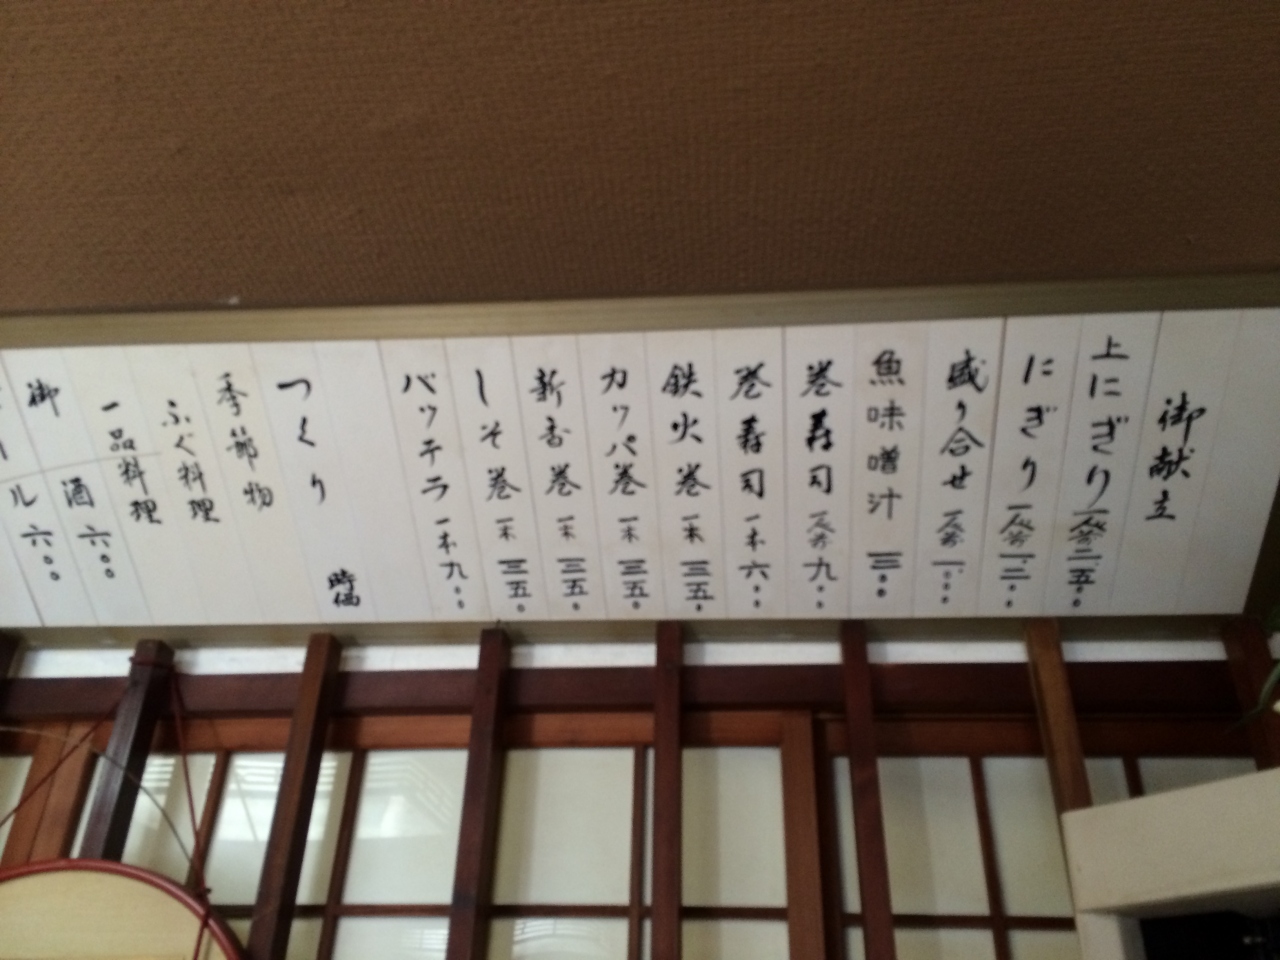 御献立
上にぎり 一人前 二、五〇〇
にぎり 一人前 一、三〇〇
盛り合せ 一人前 一、〇〇〇
魚味噌汁 三〇〇
巻寿司 一人前 九〇〇
巻寿司 一本 六〇〇
鉄火巻 一本 三五〇
カッパ巻 一本 三五〇
新香巻 一本 三五〇
しそ巻 一本 三五〇
バッテラ 一本 九〇〇
時価
つくり
季節物
ふぐ料理
一品料理
御酒 六〇〇
ール 六〇〇